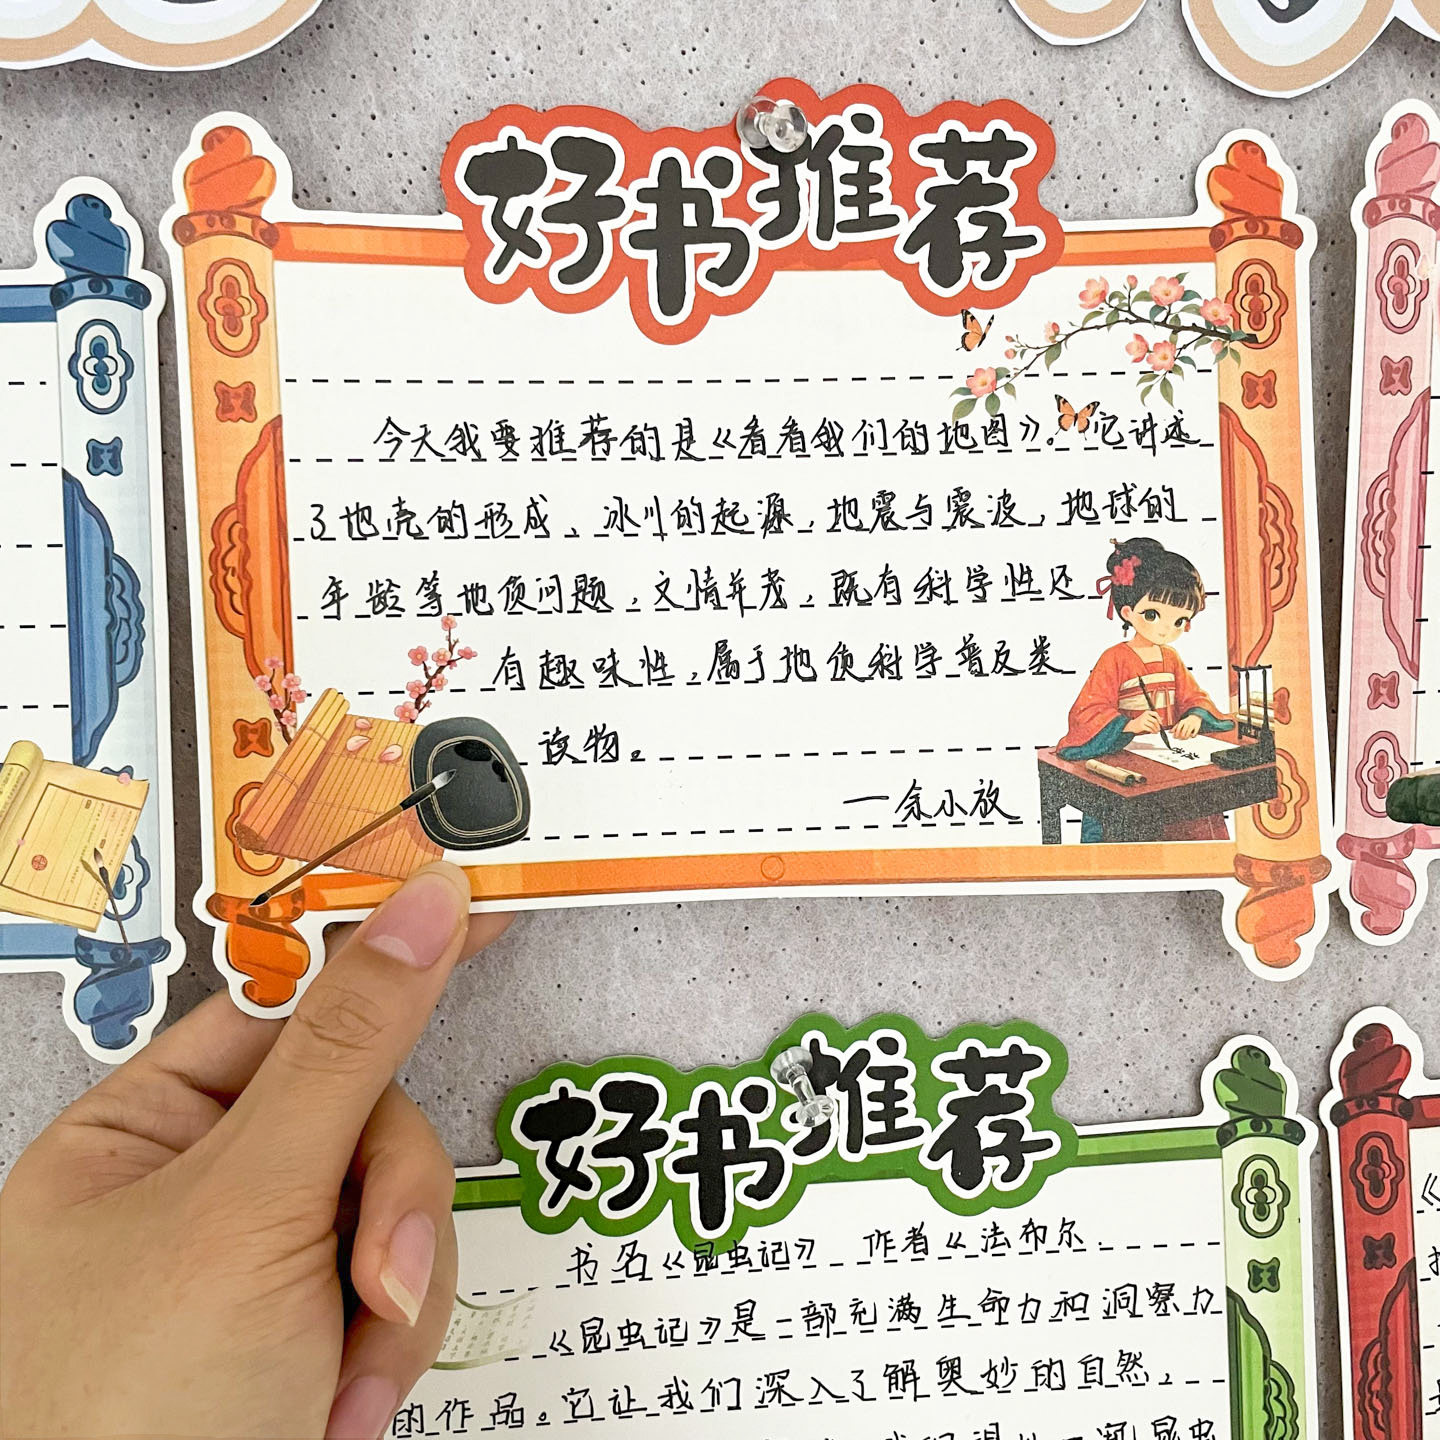 好书推荐
今天我要推荐的是《看看我们的地图》。它讲述
了地壳的形成、冰川的起源，地震与震波，地球的
年龄等地质问题，文情并茂，既有科学性还
有趣味性，属于地质科学普及类
读物。
一余小放
好书推荐
书名《昆虫记》 作者《法布尔
《昆虫记》是一部充满生命力和洞察力
的作品。它让我们深入了解奥妙的自然，
昆虫